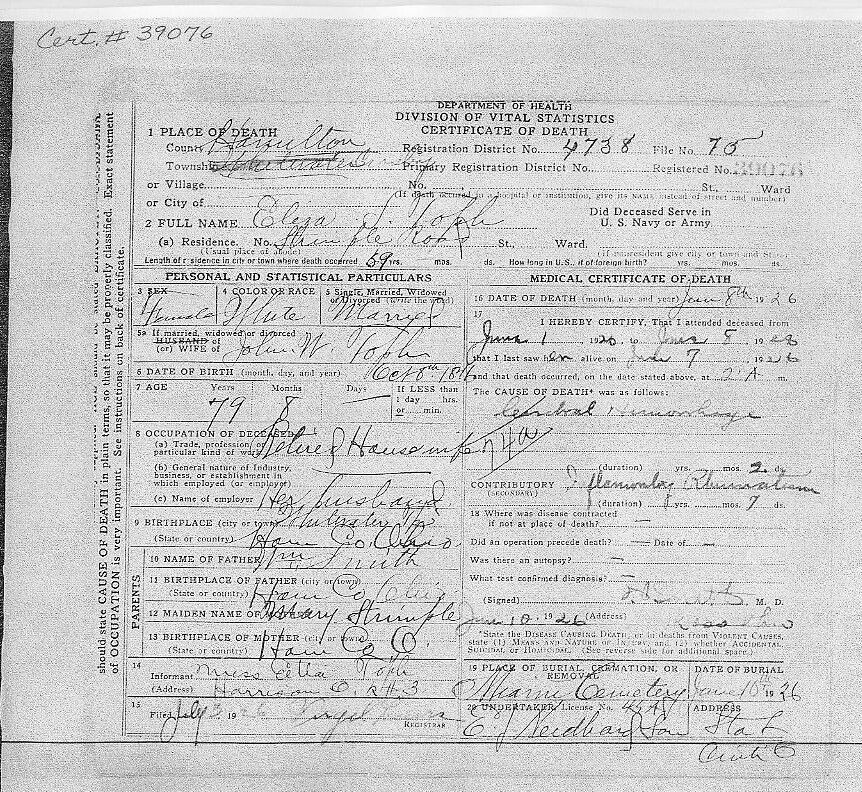 Cert. # 39076
DEPARTMENT OF HEALTH
DIVISION OF VITAL STATISTICS
CERTIFICATE OF DEATH
1 PLACE OF DEATH
County Hamilton Registration District No. 4738 File No. 75
Township Primary Registration District No. Registered No. 39076
or Village No. St., Ward
(If death occurred in a hospital or institution, give its NAME instead of street and number)
or City of
2 FULL NAME Eliza S. Toph Did Deceased Serve in
U. S. Navy or Army
(a) Residence. No. Strimple Road St., Ward.
(Usual place of abode) (If nonresident give city or town and State)
Length of residence in city or town where death occurred 59 yrs. mos. ds. How long in U.S., if of foreign birth? yrs. mos. ds.
PERSONAL AND STATISTICAL PARTICULARS
3 SEX 4 COLOR OR RACE 5 Single, Married, Widowed
or Divorced (write the word)
Female White Married
5a If married, widowed or divorced
HUSBAND of
(or) WIFE of John W. Toph
6 DATE OF BIRTH (month, day, and year) Oct 8th 1846
7 AGE Years Months Days If LESS than
1 day hrs.
or min.
79 8
8 OCCUPATION OF DECEASED
(a) Trade, profession, or
particular kind of work Retired Housewife
(b) General nature of Industry,
business, or establishment in
which employed (or employer)
(c) Name of employer Her husband
9 BIRTHPLACE (city or town)
(State or country) Ham Co. Ohio
PARENTS
10 NAME OF FATHER Wm. Smith
11 BIRTHPLACE OF FATHER (city or town)
(State or country) Ham Co Ohio
12 MAIDEN NAME OF MOTHER Mary Strimple
13 BIRTHPLACE OF MOTHER (city or town)
(State or country) Ham Co O.
14
Informant Miss Etta Toph
(Address) Harrison O. R# 3
15
Filed July 3 1926 REGISTRAR
MEDICAL CERTIFICATE OF DEATH
16 DATE OF DEATH (month, day and year) June 8th 1926
17
I HEREBY CERTIFY, That I attended deceased from
June 1 1926, to June 8 1926
that I last saw her alive on June 7 1926
and that death occurred, on the date stated above, at 2 A m.
The CAUSE OF DEATH* was as follows:
Cerebral Hemorrhage
74a
(duration) yrs. mos. 2 ds.
CONTRIBUTORY Inflamatory Rheumatism
(SECONDARY)
(duration) yrs. mos. 7 ds.
18 Where was disease contracted
if not at place of death? —
Did an operation precede death? — Date of —
Was there an autopsy? —
What test confirmed diagnosis? —
(Signed) M. D.
June 10, 1926 (Address)
*State the DISEASE CAUSING DEATH, or in deaths from VIOLENT CAUSES,
state (1) MEANS AND NATURE OF INJURY, and (2) whether ACCIDENTAL
SUICIDAL, or HOMICIDAL. (See reverse side for additional space.)
19 PLACE OF BURIAL, CREMATION, OR
REMOVAL DATE OF BURIAL
Miami Cemetery June 10th 1926
20 UNDERTAKER License No. ADDRESS
E J Needham Son Sta L
Cinti O
should state CAUSE OF DEATH in plain terms, so that it may be properly classified. Exact statement
of OCCUPATION is very important. See instructions on back of certificate.